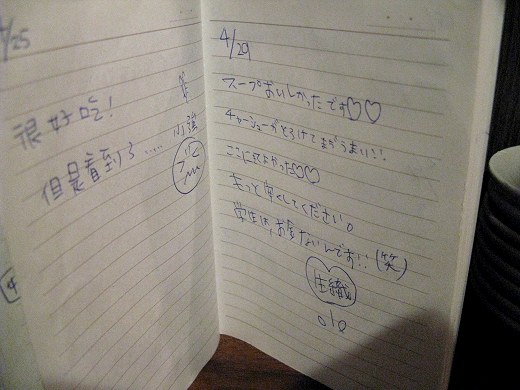 4/25
很好吃!
但是看到了.....小強
4/29
スープおいしかったです♡♡
チャーシューがとろけてまぢうまい!!
ここに来てよかった♡♡
もっと安くしてください。
学生は、お金ないんです!!(笑)